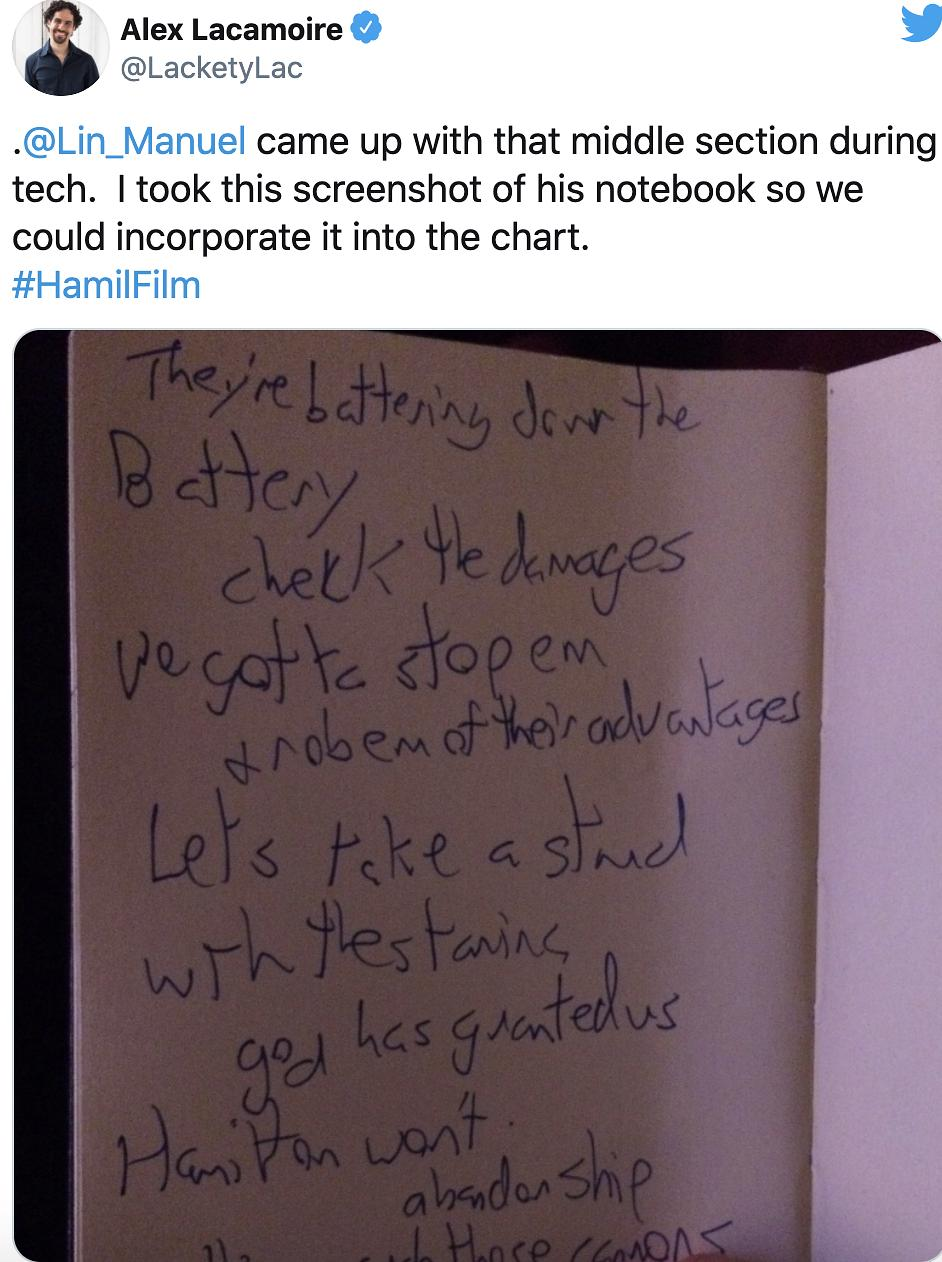 Alex Lacamoire
@LacketyLac
.@Lin_Manuel came up with that middle section during
tech.  I took this screenshot of his notebook so we
could incorporate it into the chart.
#HamilFilm
They're battering down the
Battery
check the damages
We gotta stop em
& rob em of their advantages
Let's take a stand
with the stamina
god has granted us
Hamilton won't.
abandon ship
those cannons